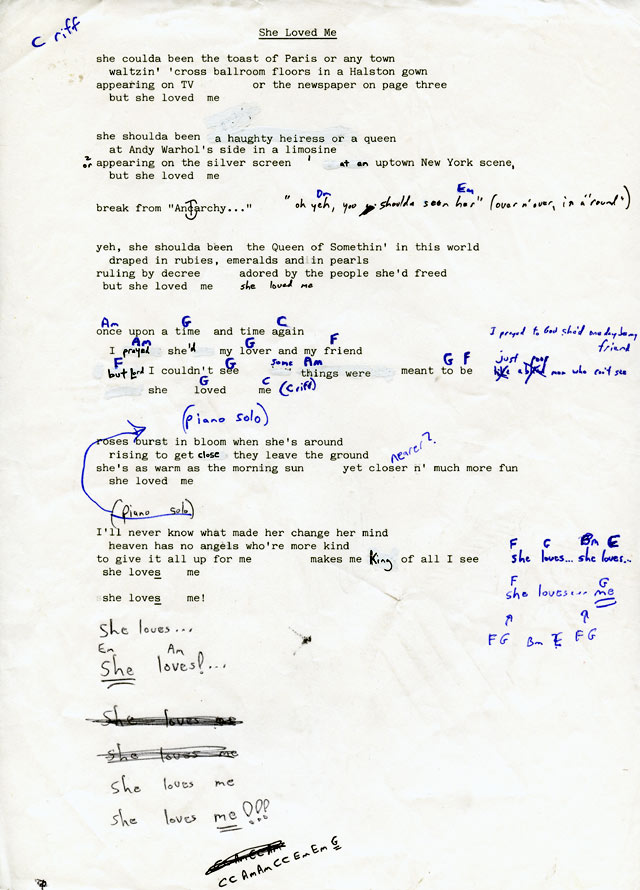 C riff
She Loved Me
she coulda been the toast of Paris or any town
waltzin' 'cross ballroom floors in a Halston gown
appearing on TV or the newspaper on page three
but she loved me
she shoulda been a haughty heiress or a queen
at Andy Warhol's side in a limosine
or appearing on the silver screen ' at an uptown New York scene,
but she loved me
Dm Em
break from "Anarchy..." "oh yeh, you shoulda seen her" (over n' over, in a "round")
yeh, she shoulda been the Queen of Somethin' in this world
draped in rubies, emeralds and in pearls
ruling by decree adored by the people she'd freed
but she loved me she loved me
Am G C
once upon a time and time again
Am G F
I prayed she'd my lover and my friend
F G some Am G F
but Lord I couldn't see things were meant to be
G C
she loved me (C riff)
I prayed to God she'd one day be my
friend
just fool
man who can't see
(piano solo)
roses burst in bloom when she's around
rising to get close they leave the ground
nearer?
she's as warm as the morning sun yet closer n' much more fun
she loved me
(piano solo)
I'll never know what made her change her mind
heaven has no angels who're more kind
to give it all up for me makes me King of all I see
she loves me
she loves me!
F G Bm E
she loves... she loves...
F G
she loves... me
F G Bm E F G
She loves...
Em Am
She loves!...
She loves me
She loves me
She loves me
She loves me !!!
C C Am Am C C Em Em G